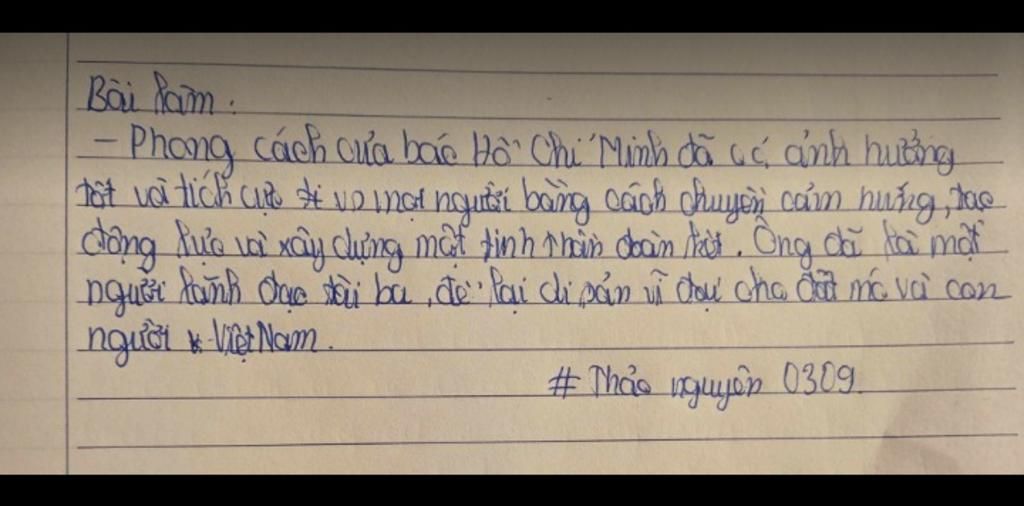 Bài làm.
- Phong cách của bác Hồ Chí Minh đã có ảnh hưởng
tốt và tích cực mọi người bằng cách chuyền cảm hứng, tạo
động lực và xây dựng một tinh thần đoàn kết. Ông đã là một
người lãnh đạo tài ba, để lại di sản vĩ đại cho đất và con
người Việt Nam.
# Thảo nguyên 0309